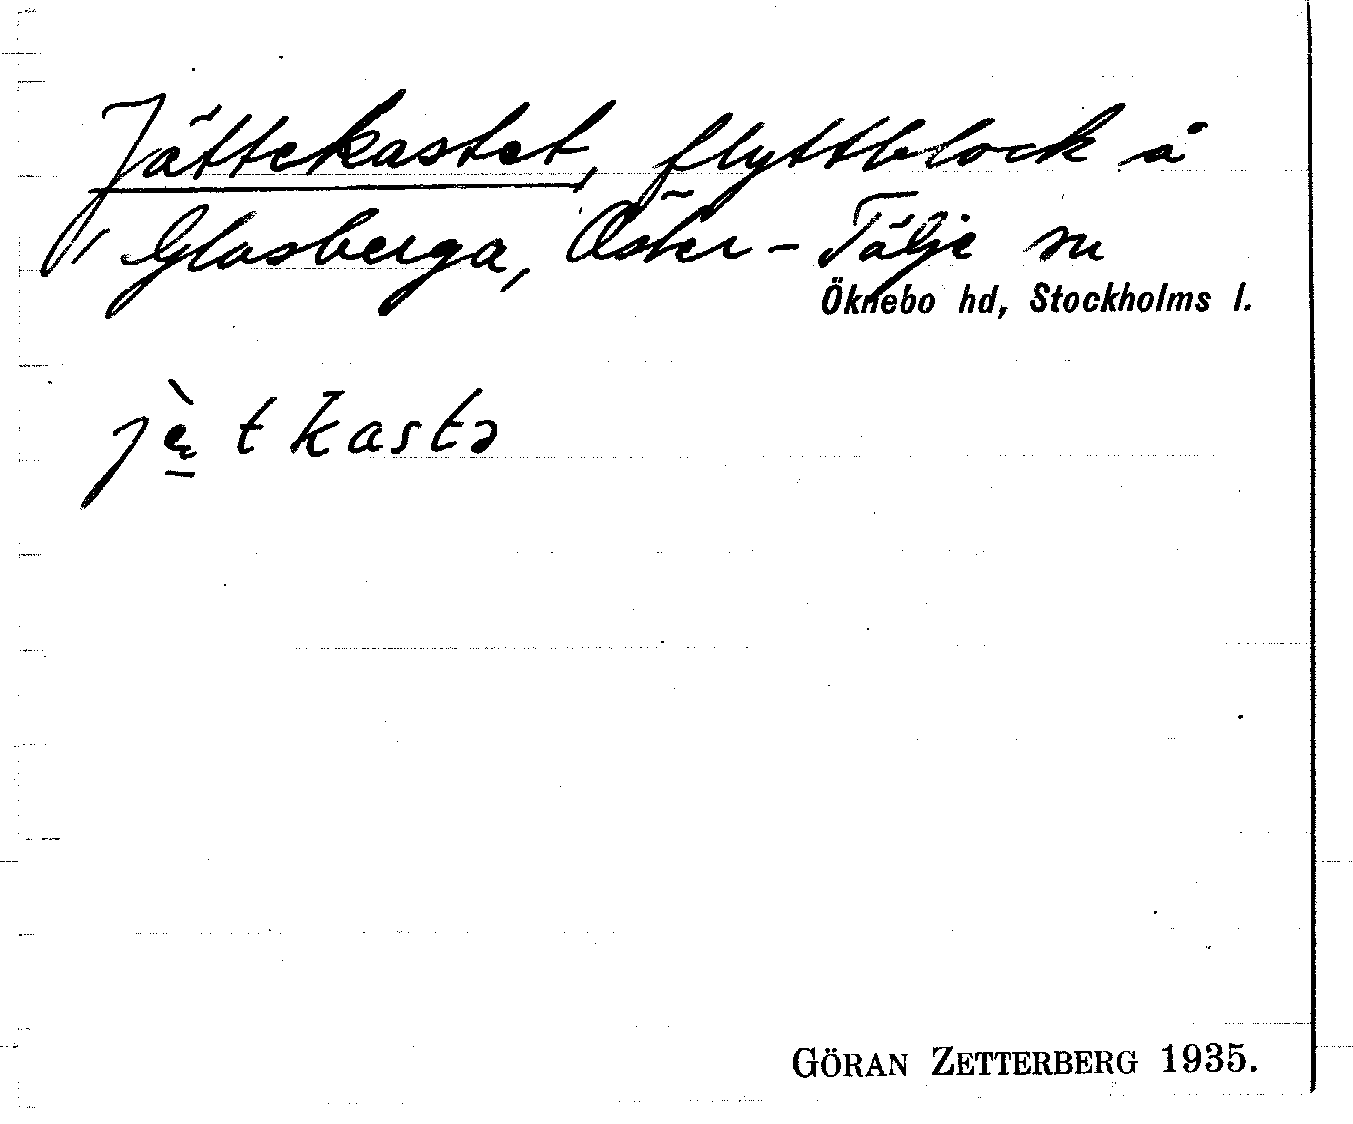 Jättekastet, flyttblock å
Glasberga, Öster-Tälje sn
Öknebo hd, Stockholms l.
jè̱tkastə
GÖRAN ZETTERBERG 1935.